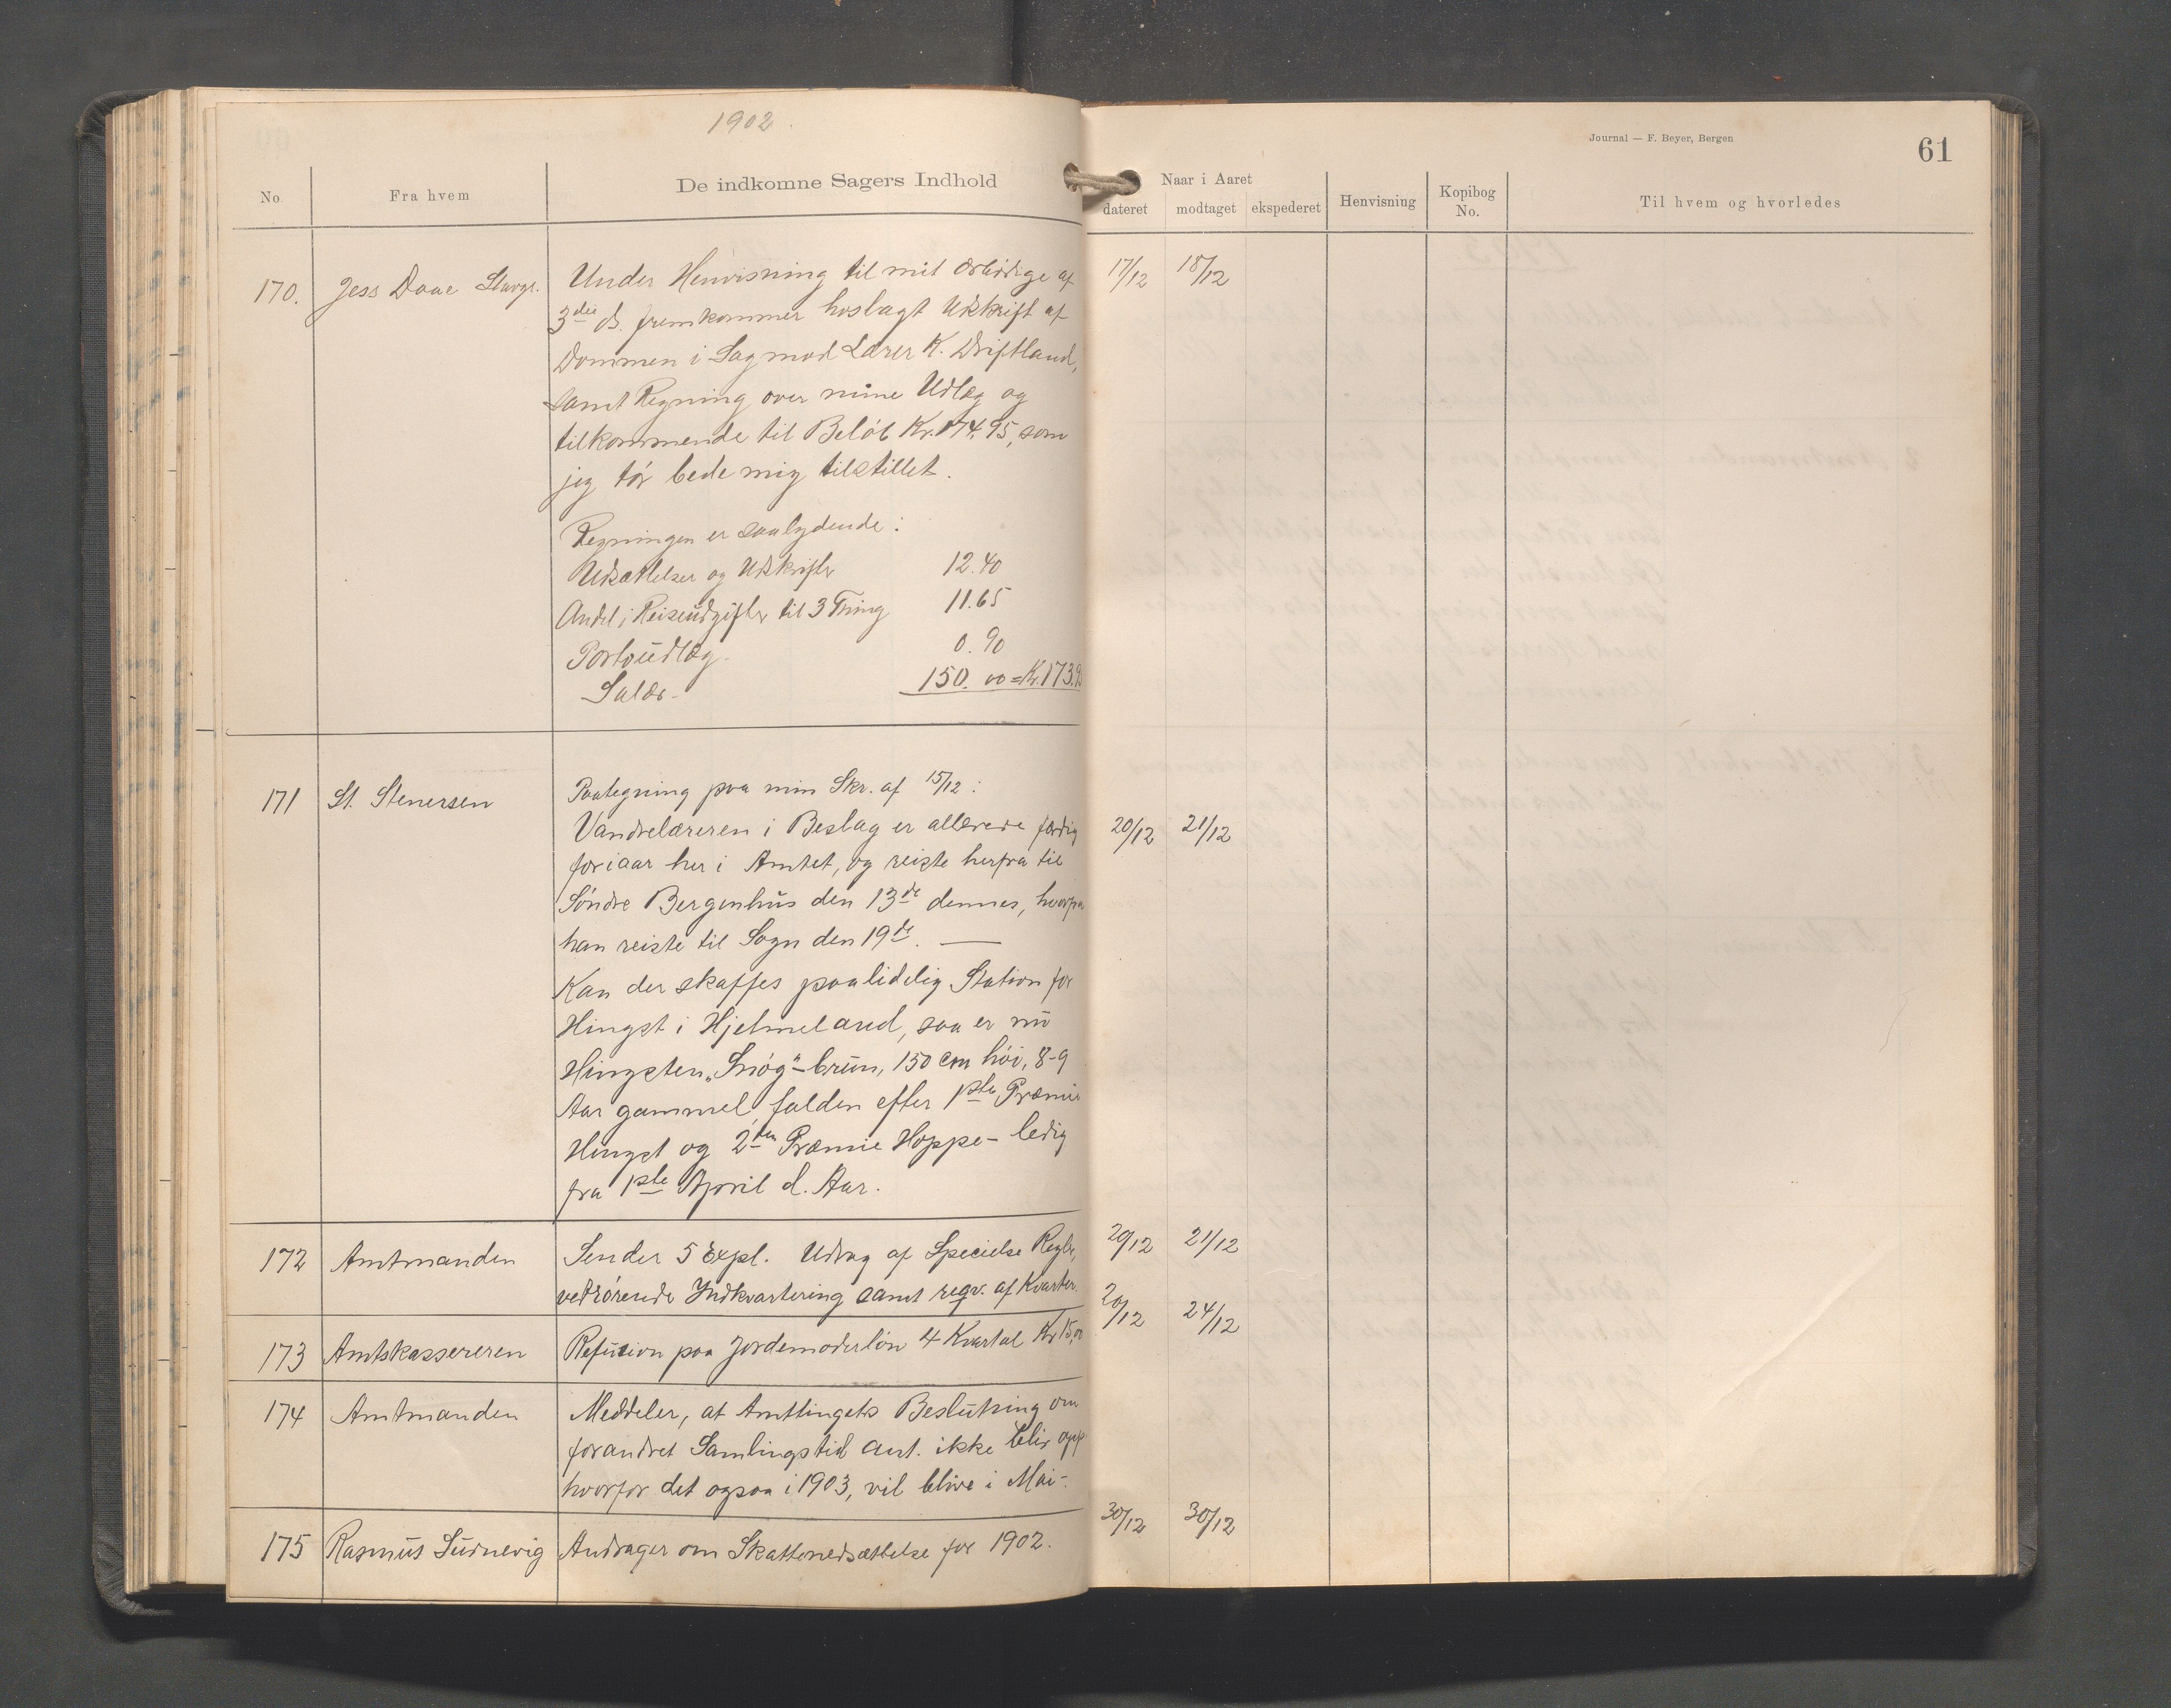 1902.
Journal — F. Beyer, Bergen
61
No. Fra hvem De indkomne Sagers Indhold Naar i Aaret dateret modtaget ekspederet Henvisning Kopibog No. Til hvem og hvorledes
170. Jess Daae Stavgr. Under Henvisning til mit ærbødige af 17/12 18/12
3die ds. fremkommer hoslagt Udskrift af
Dommen i Sag mod Lærer K. Driftland,
samt Regning over mine Udlæg og
tilkommende til Beløb Kr. 174.95, som
jeg tør bede mig tilstillet.
Regningen er saalydende:
Udsættelser og Udskrifter 12.40
Andel i Reiseudgifter til 3 Thing 11.65
Portoudlæg. 0.90
Salær - 150.00 = Kr. 173.9
171 St. Stenersen Paategning paa min Skr. af 15/12:
Vandrelæreren i Beslag er allerede færdig 20/12 21/12
for iaar her i Amtet, og reiste herfra til
Søndre Bergenhus den 13de dennes, hvorfra
han reiste til Sogn den 19de. —
Kan der skaffes paalidelig Station for
Hingst i Hjelmeland, saa er nu
Hingsten „Snøg" - brun, 150 cm høi, 8-9
Aar gammel, falden efter 1ste Præmie
Hingst og 2den Præmie Hoppe - ledig
fra 1ste April d. Aar.
172 Amtmanden Sender 5 Expl. Udtog af Specielse Regler, 20/12 21/12
vedrørende Indkvartering samt regv. af Kvarter.
173 Amtskassereren Refusion paa Jordemoderløn 4 Kvartal Kr 15,00 20/12 24/12
174 Amtmanden Meddeler, at Amttingets Beslutning om
forandret Samlingstid ant. ikke blir opf
hvorfor det ogsaa i 1903, vil blive i Mai -.
175 Rasmus Sudnevig Andrager om Skattenedsættelse for 1902. 30/12 30/12